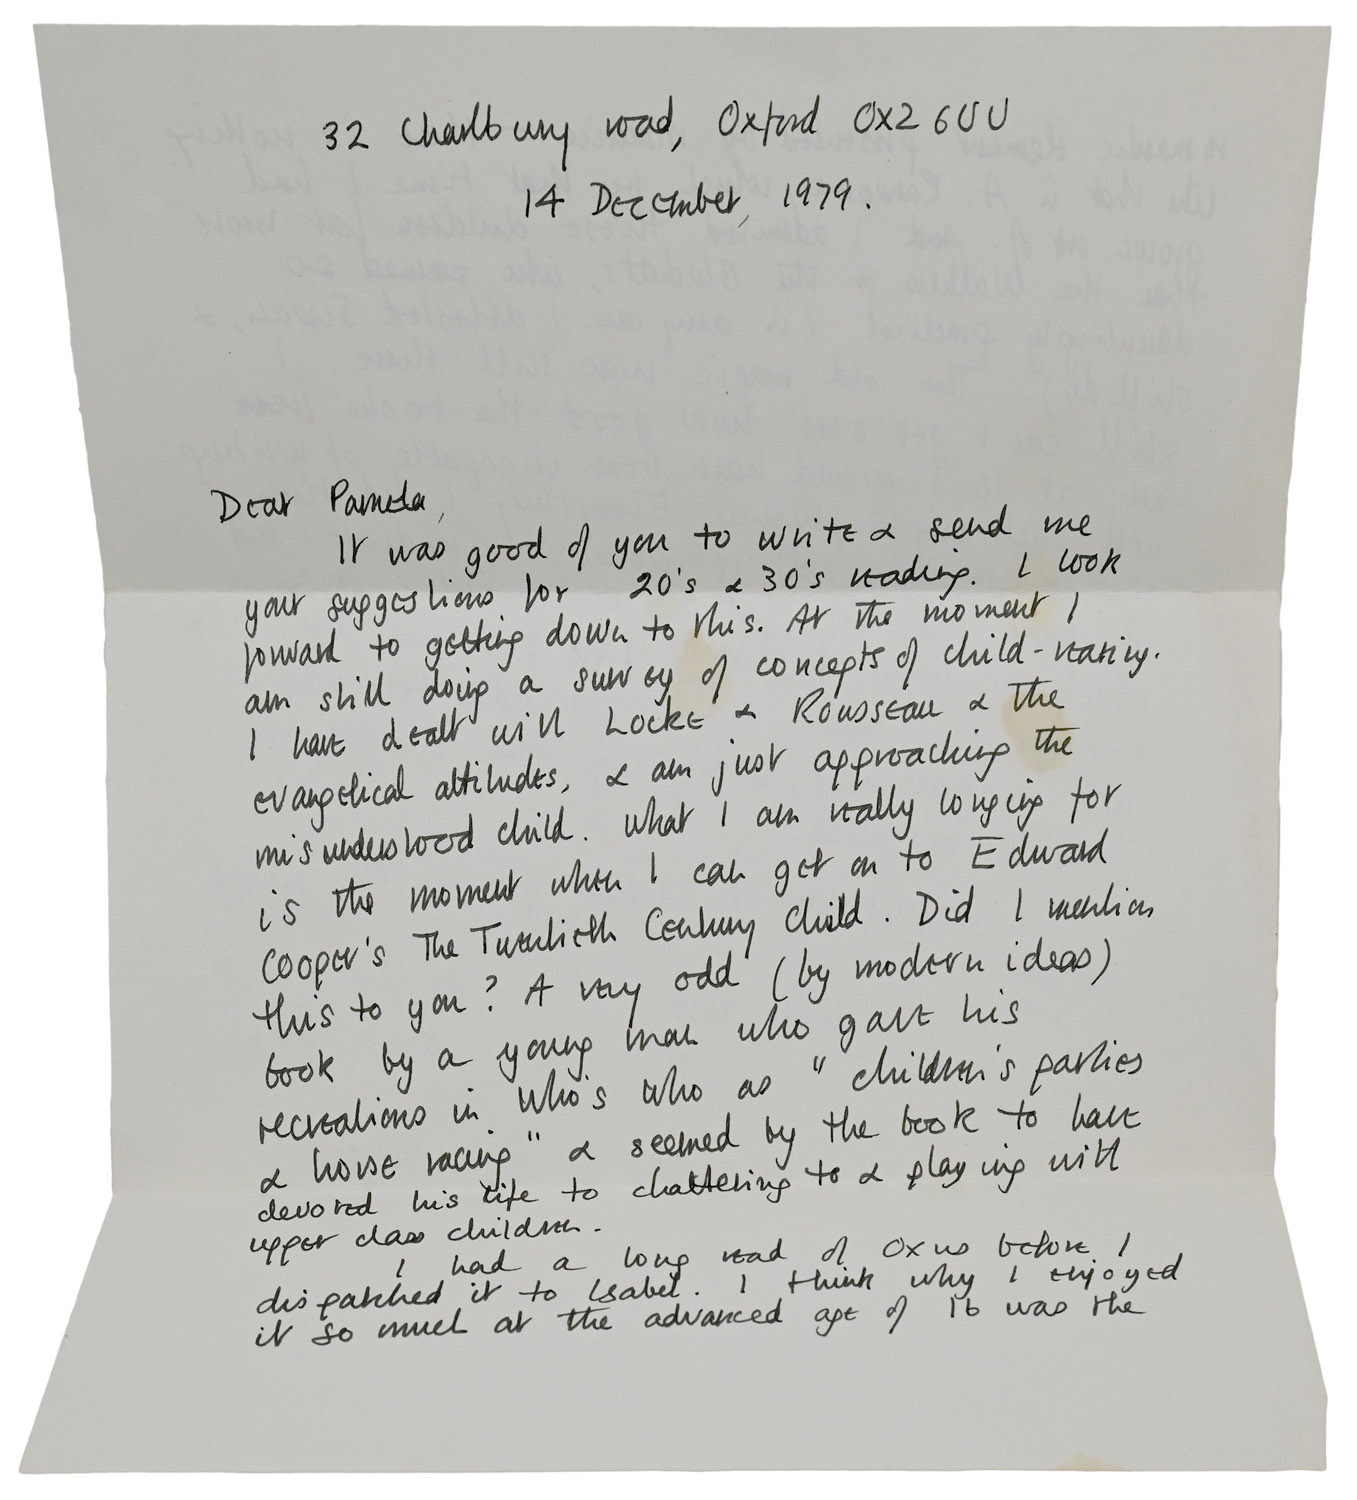 32 Charlbury road, Oxford OX2 6UU
14 December, 1979.
Dear Pamela,
It was good of you to write & send me
your suggestions for 20's & 30's reading. I look
forward to getting down to this. At the moment I
am still doing a survey of concepts of child-rearing.
I have dealt with Locke & Rousseau & the
evangelical attitudes, & am just approaching the
misunderstood child. What I am really longing for
is the moment when I can get on to Edward
Cooper's The Twentieth Century Child. Did I mention
this to you? A very odd (by modern ideas)
book by a young man who gave his
recreations in Who's Who as "children's parties
& horse racing" & seemed by the book to have
devoted his life to chattering to & playing with
upper class children.
I had a long read of Oxus before I
dispatched it to Isabel. I think why I enjoyed
it so much at the advanced age of 16 was the